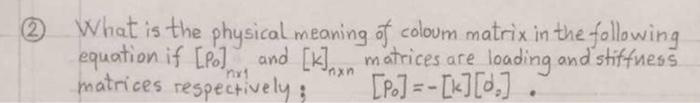 ② What is the physical meaning of coloum matrix in the following
equation if [P₀]ₙₓ₁ and [k]ₙₓₙ matrices are loading and stiffness
matrices respectively; [P₀] = -[k][d₀] .